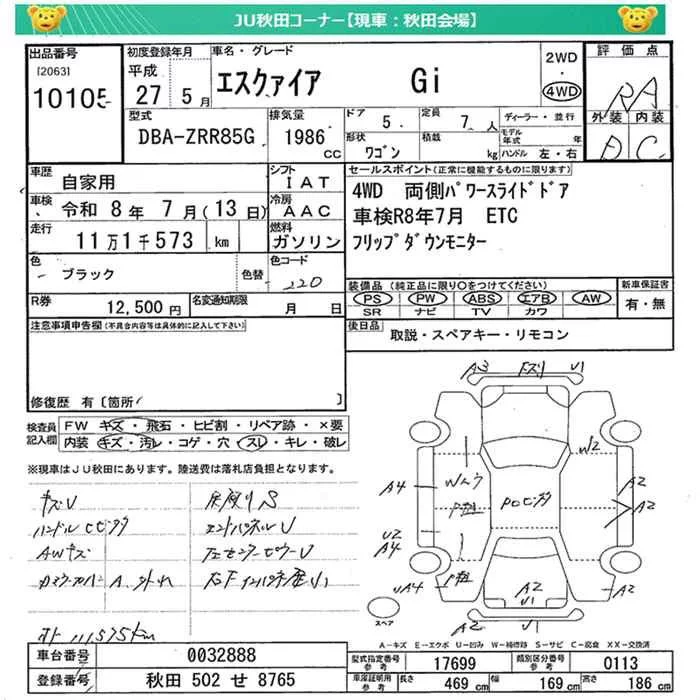 JU秋田コーナー【現車：秋田会場】
出品番号
[2063]
10105
初度登録年月
平成
27 5月
車名・グレード
エスクァイア Gi
2WD
：
4WD
評価点
RA
外装 内装
D C
型式
DBA-ZRR85G
排気量
1986
CC
ドア
5
定員
7 人
形状
ワゴン
積載
kg
ディーラー・並行
モデル年式 年
ハンドル 左・右
車歴
自家用
シフト
IAT
車検
令和 8年 7月 (13日)
冷房
AAC
走行
11万1千573 km
燃料
ガソリン
色
ブラック
色替
色コード
220
R券
12,500円
名変通知期限
月 日
セールスポイント(正常に機能するものに限ります)
4WD 両側パワースライドドア
車検R8年7月 ETC
フリップダウンモニター
装備品 (純正品に限り○をつけてください)
PS PW ABS エアB AW
SR ナビ TV カワ
新車保証書
有・無
後日品
取説・スペアキー・リモコン
注意事項申告欄(不具合内容等は具体的に記入して下さい)
修復歴 有〔箇所 〕
検査員
記入欄
FW キズ・飛石・ヒビ割・リペア跡・×要
内装 キズ・汚レ・コゲ・穴・スレ・キレ・破レ
※現車はJU秋田にあります。陸送費は落札店負担となります。
キズU
AWキズ
111575km
A3 U1
W2
A4
A2
A2
U2
A4
UA4
A2
A2
U1
A2
U1
スペア
A－キズ E－エクボ U－凹み W－補修跡 S－サビ C－腐食 XX－交換済
車台番号
0032888
登録番号
秋田 502 せ 8765
型式指定番号
参考
17699
類別区分番号
参考
0113
車庫証明用
参考
長さ
469 cm
幅
169 cm
高さ
186 cm